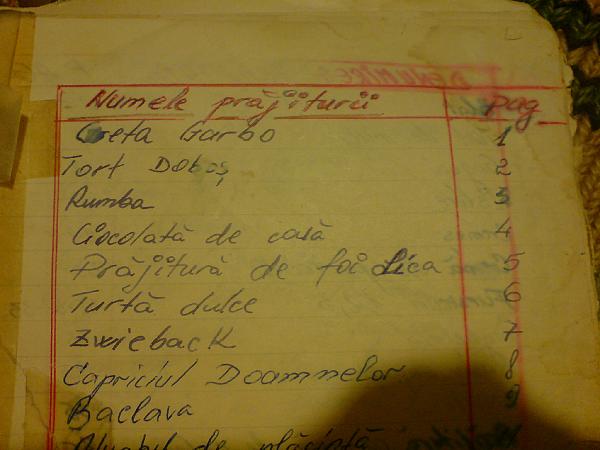 Numele prăjiturii pag
Greta Garbo 1
Tort Doboș 2
Rumba 3
Ciocolată de casă 4
Prăjitură de foi Lica 5
Turtă dulce 6
Zwieback 7
Capriciul Doamnelor 8
Baclava 9
Aluatul de plăcintă